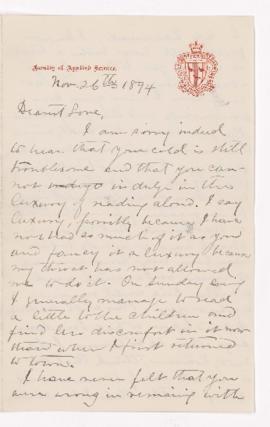 Faculty of Applied Science.
Nov. 26th 1894
Dearest Love,
I am sorry indeed
to hear that your cold is still
troublesome and that you can-
not indulge in the
luxury of reading aloud. I say
luxury, possibly because I have
not had so much of it as you
and fancy it a luxury because
my throat has not allowed
me to do it. On Sunday evg
I generally manage to read
a little to the children and
find less discomfort in it now
than when I first returned
to town.
I have never felt that you
were wrong in remaining with